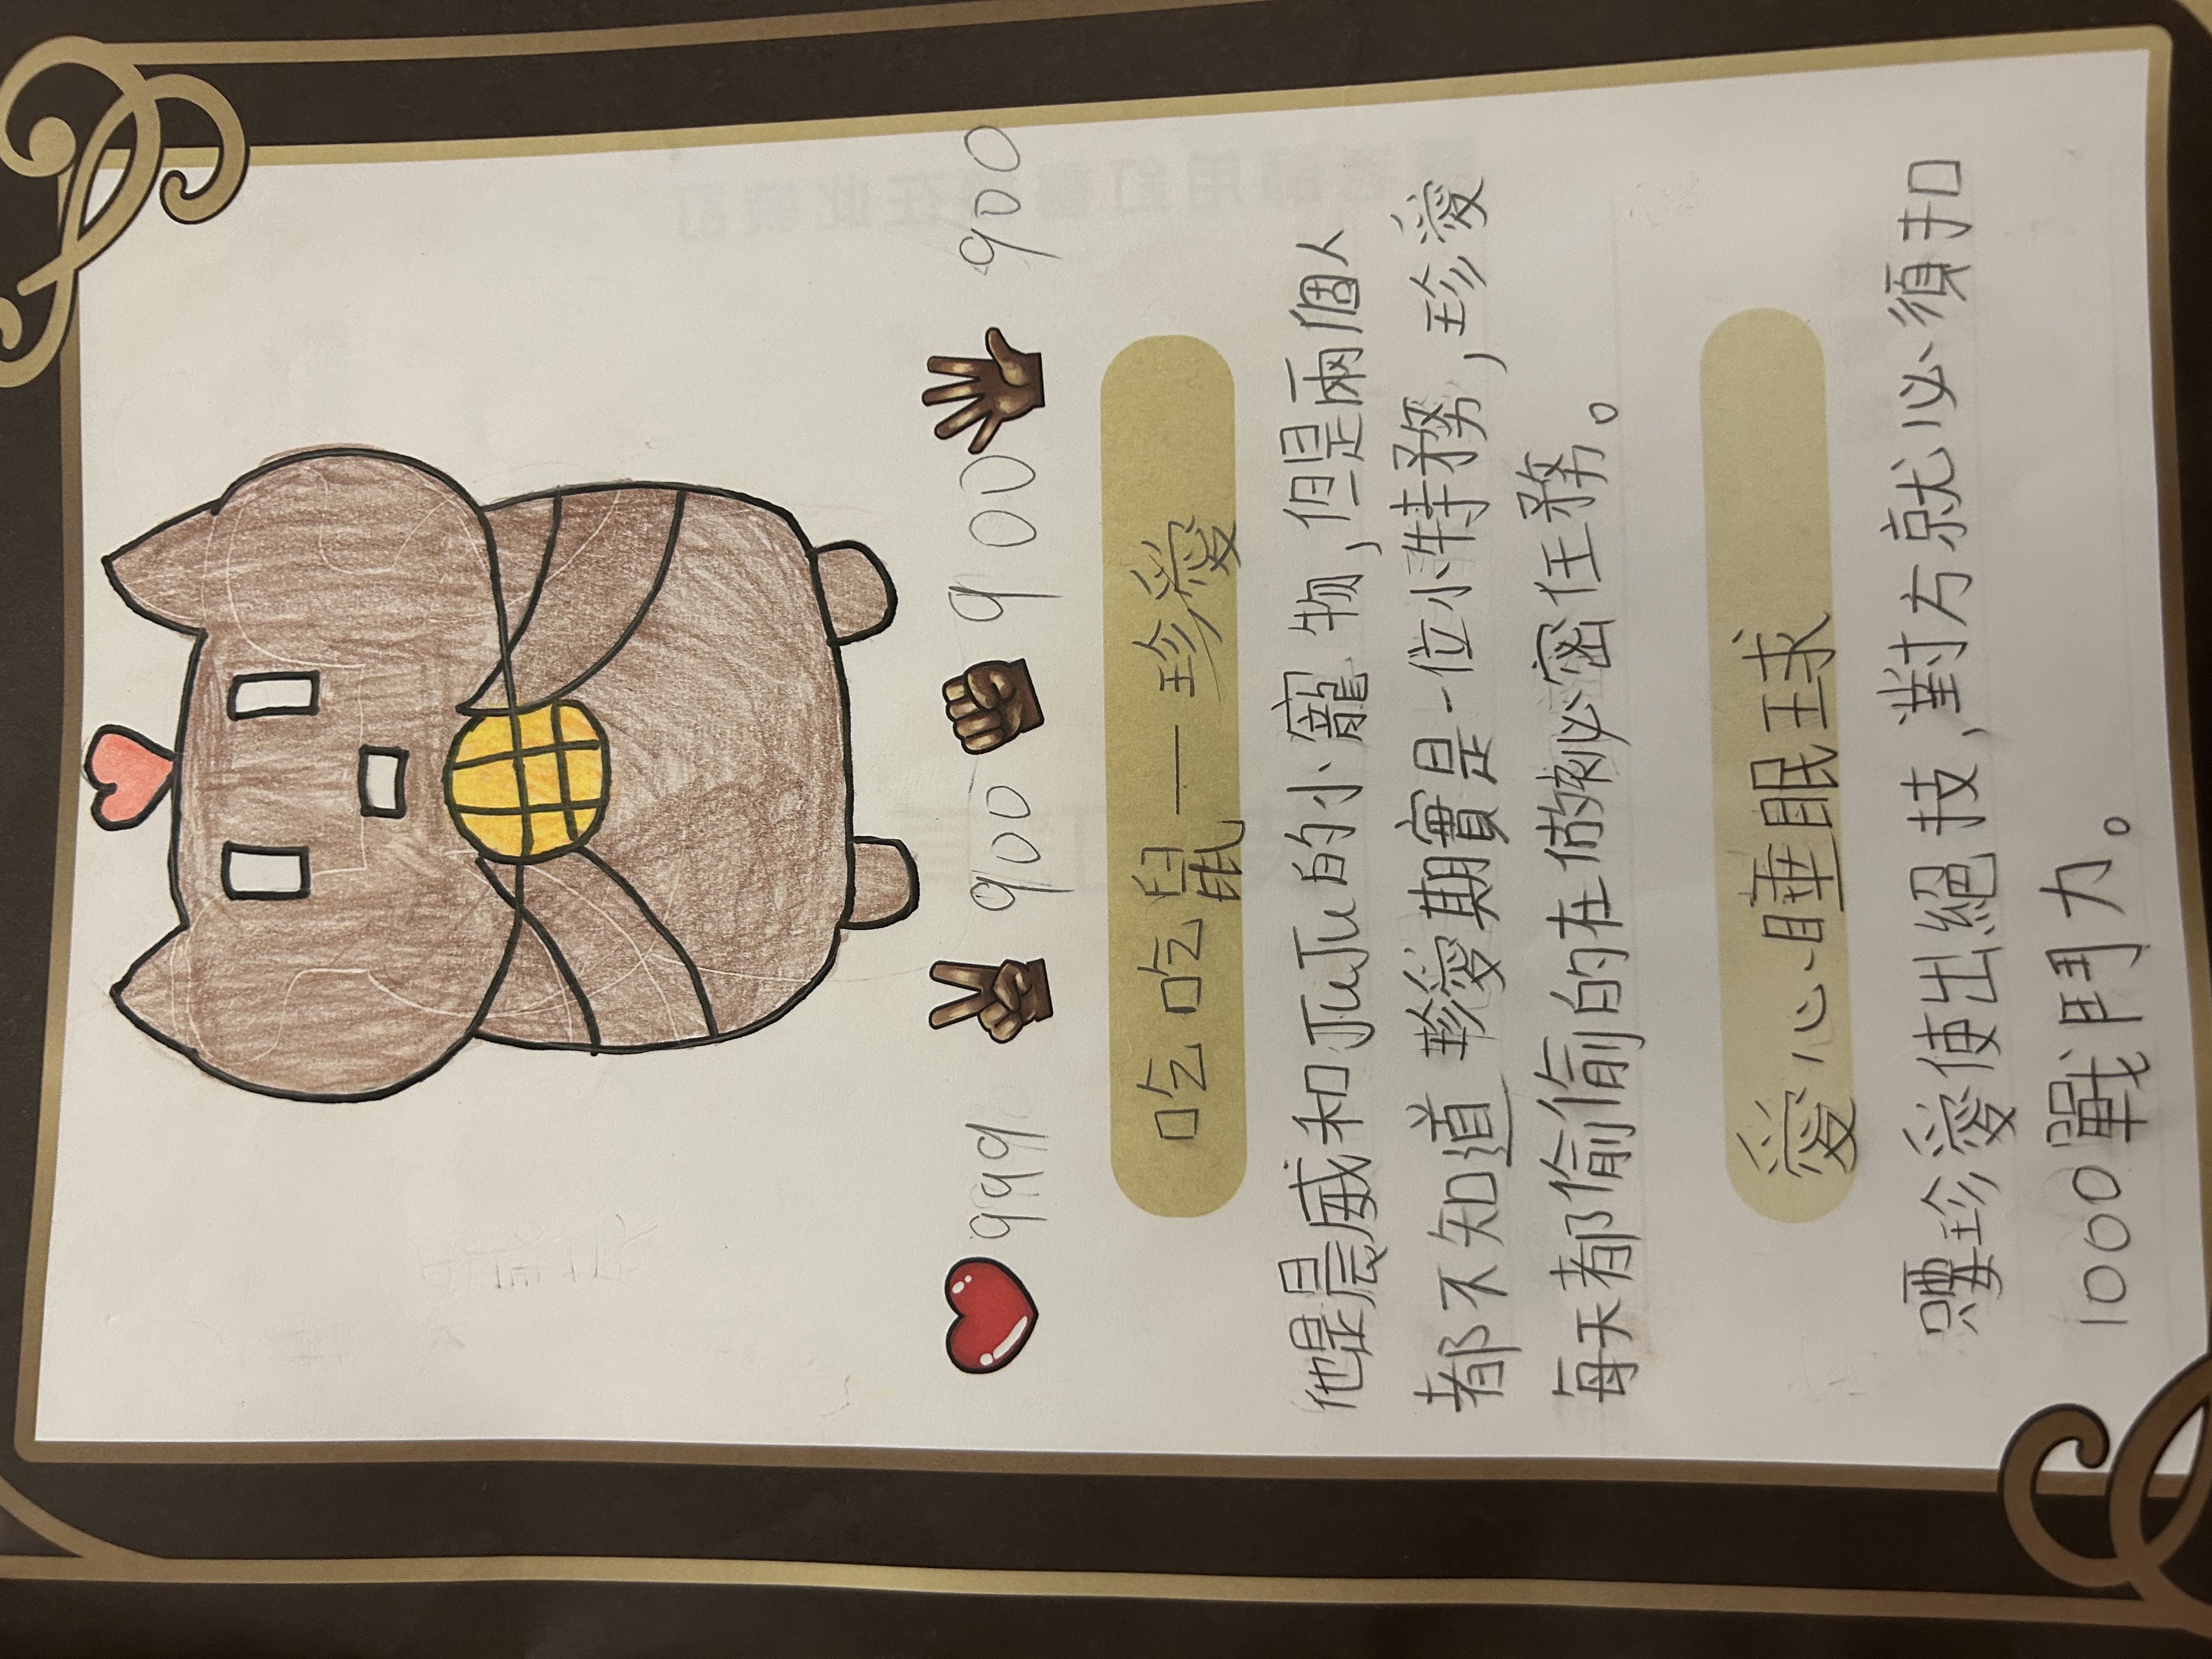 999 900 900 900
吃吃鼠——珍愛
他是晨威和JuJu的小寵物,但是兩個人
都不知道珍愛期實是一位小特務,珍愛
每天都偷偷的在做祕密任務。
愛心睡眠球
珍愛使出絕技,對方就必須扣
1000戰鬥力。